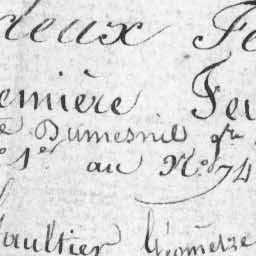 deux Fe
emière Feu
e Dumesnil gra
o 1er au No 74
Gaultier Géomètre